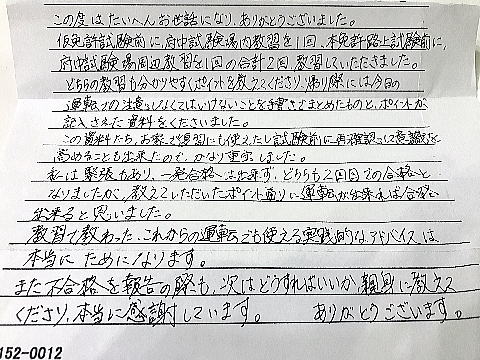 この度はたいへんお世話になり、ありがとうございました。
仮免許試験前に、府中試験場内教習を1回、本免許路上試験前に、
府中試験場周辺教習を1回の合計2回、教習していただきました。
どちらの教習も分かりやすくポイントを教えてくださり、帰り際には今日の
運転での注意しなくてはいけないことを手書きでまとめたものと、ポイントが
記入された資料をくださいました。
この資料たち、お家で復習にも使えたし試験前に再確認して意識を
高めることも出来たので、かなり重宝しました。
私は緊張もあり、一発合格へは出来ず、どちらも2回目での合格と
なりましたが、教えていただいたポイント通りに運転が出来れば合格
出来ると思いました。
教習で教わった、これからの運転でも使える実践的なアドバイスは
本当にためになります。
また不合格を報告の際も、次はどうすればいいか、親身に教えて
くださり、本当に感謝しています。 ありがとうございます。
152-0012